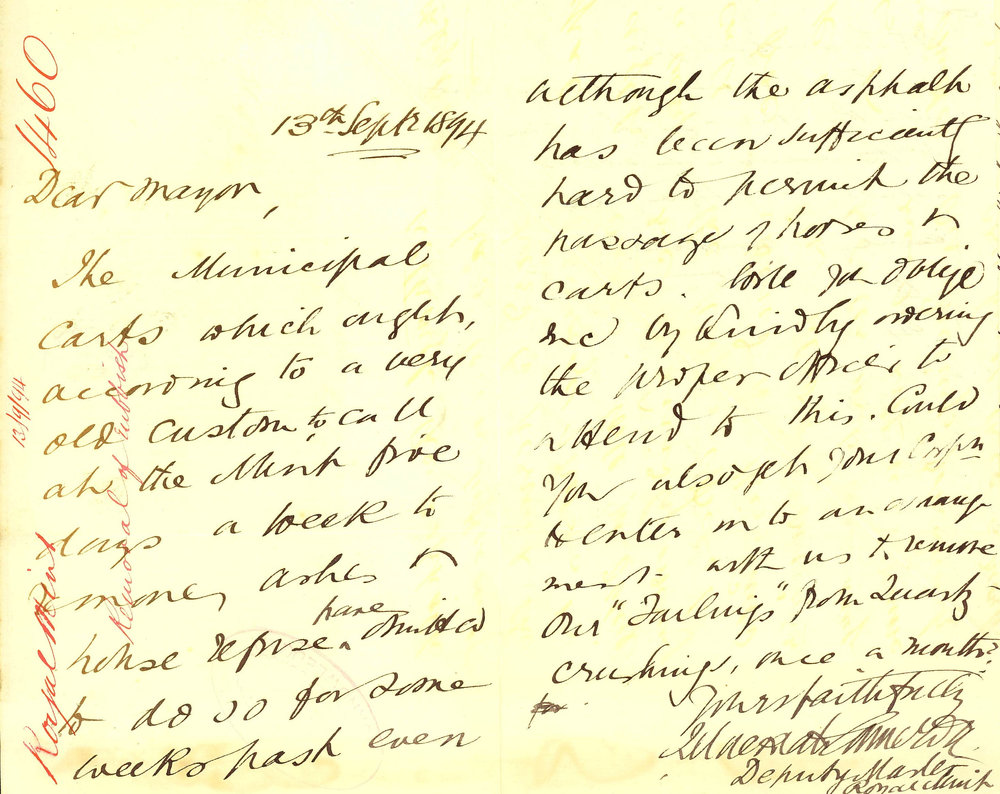 1460
13th Septr 1894
Dear Mayor,
The Municipal
Carts which ought,
according to a very
old custom to call
at the Mint five
days a week to
remove ashes &
house refuse have omitted
to do so for some
weeks past even
although the asphalt
has been sufficiently
hard to permit the
passage of horses &
carts. Will you oblige
me by kindly ordering
the proper officer to
attend to this. Could
you also get your Corpn
to enter into an arrange
ment with us to remove
our "Tailings" from Quartz
crushings, once a month?
Yours faithfully
Deputy Master
Royal Mint
13/9/94
Royal Mint
Removal of rubbish